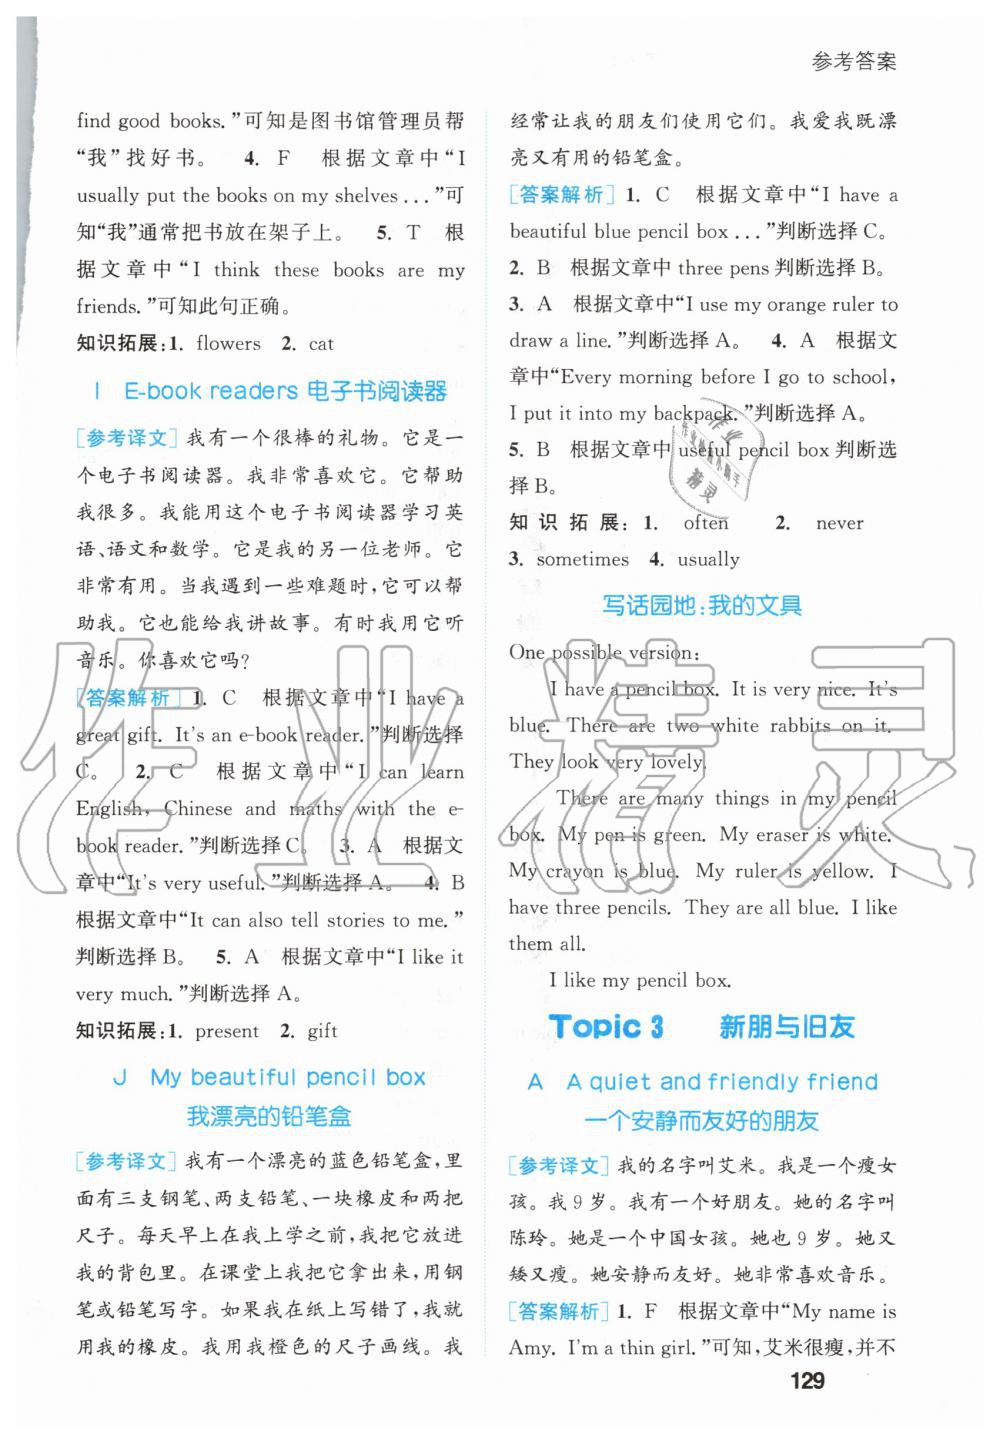 参考答案
find good books.”可知是图书馆管理员帮
“我”找好书。 4. F 根据文章中“I
usually put the books on my shelves ...”可
知“我”通常把书放在架子上。 5. T 根
据文章中“I think these books are my
friends.”可知此句正确。
知识拓展:1. flowers 2. cat
I E-book readers 电子书阅读器
[参考译文] 我有一个很棒的礼物。它是一
个电子书阅读器。我非常喜欢它。它帮助
我很多。我能用这个电子书阅读器学习英
语、语文和数学。它是我的另一位老师。它
非常有用。当我遇到一些难题时,它可以帮
助我。它也能给我讲故事。有时我用它听
音乐。你喜欢它吗?
[答案解析] 1. C 根据文章中“I have a
great gift. It's an e-book reader.”判断选择
C。 2. C 根据文章中“I can learn
English, Chinese and maths with the e-
book reader.”判断选择C。 3. A 根据文
章中“It's very useful.”判断选择A。 4. B
根据文章中“It can also tell stories to me.”
判断选择B。 5. A 根据文章中“I like it
very much.”判断选择A。
知识拓展:1. present 2. gift
J My beautiful pencil box
我漂亮的铅笔盒
[参考译文] 我有一个漂亮的蓝色铅笔盒,里
面有三支钢笔、两支铅笔、一块橡皮和两把
尺子。每天早晨在我上学之前,我把它放进
我的背包里。在课堂上我把它拿出来,用钢
笔或铅笔写字。如果我在纸上写错了,我就
用我的橡皮。我用我橙色的尺子画线。我
经常让我的朋友们使用它们。我爱我既漂
亮又有用的铅笔盒。
[答案解析] 1. C 根据文章中“I have a
beautiful blue pencil box ...”判断选择C。
2. B 根据文章中 three pens 判断选择B。
3. A 根据文章中“I use my orange ruler to
draw a line.”判断选择A。 4. A 根据文
章中“Every morning before I go to school,
I put it into my backpack.”判断选择A。
5. B 根据文章中 useful pencil box 判断选
择B。
知识拓展: 1. often 2. never
3. sometimes 4. usually
写话园地:我的文具
One possible version:
I have a pencil box. It is very nice. It's
blue. There are two white rabbits on it.
They look very lovely.
There are many things in my pencil
box. My pen is green. My eraser is white.
My crayon is blue. My ruler is yellow. I
have three pencils. They are all blue. I like
them all.
I like my pencil box.
Topic 3 新朋与旧友
A A quiet and friendly friend
一个安静而友好的朋友
[参考译文] 我的名字叫艾米。我是一个瘦女
孩。我9岁。我有一个好朋友。她的名字叫
陈玲。她是一个中国女孩。她也9岁。她又
矮又瘦。她安静而友好。她非常喜欢音乐。
[答案解析] 1. F 根据文章中“My name is
Amy. I'm a thin girl.”可知,艾米很瘦,并不
129
作业精灵